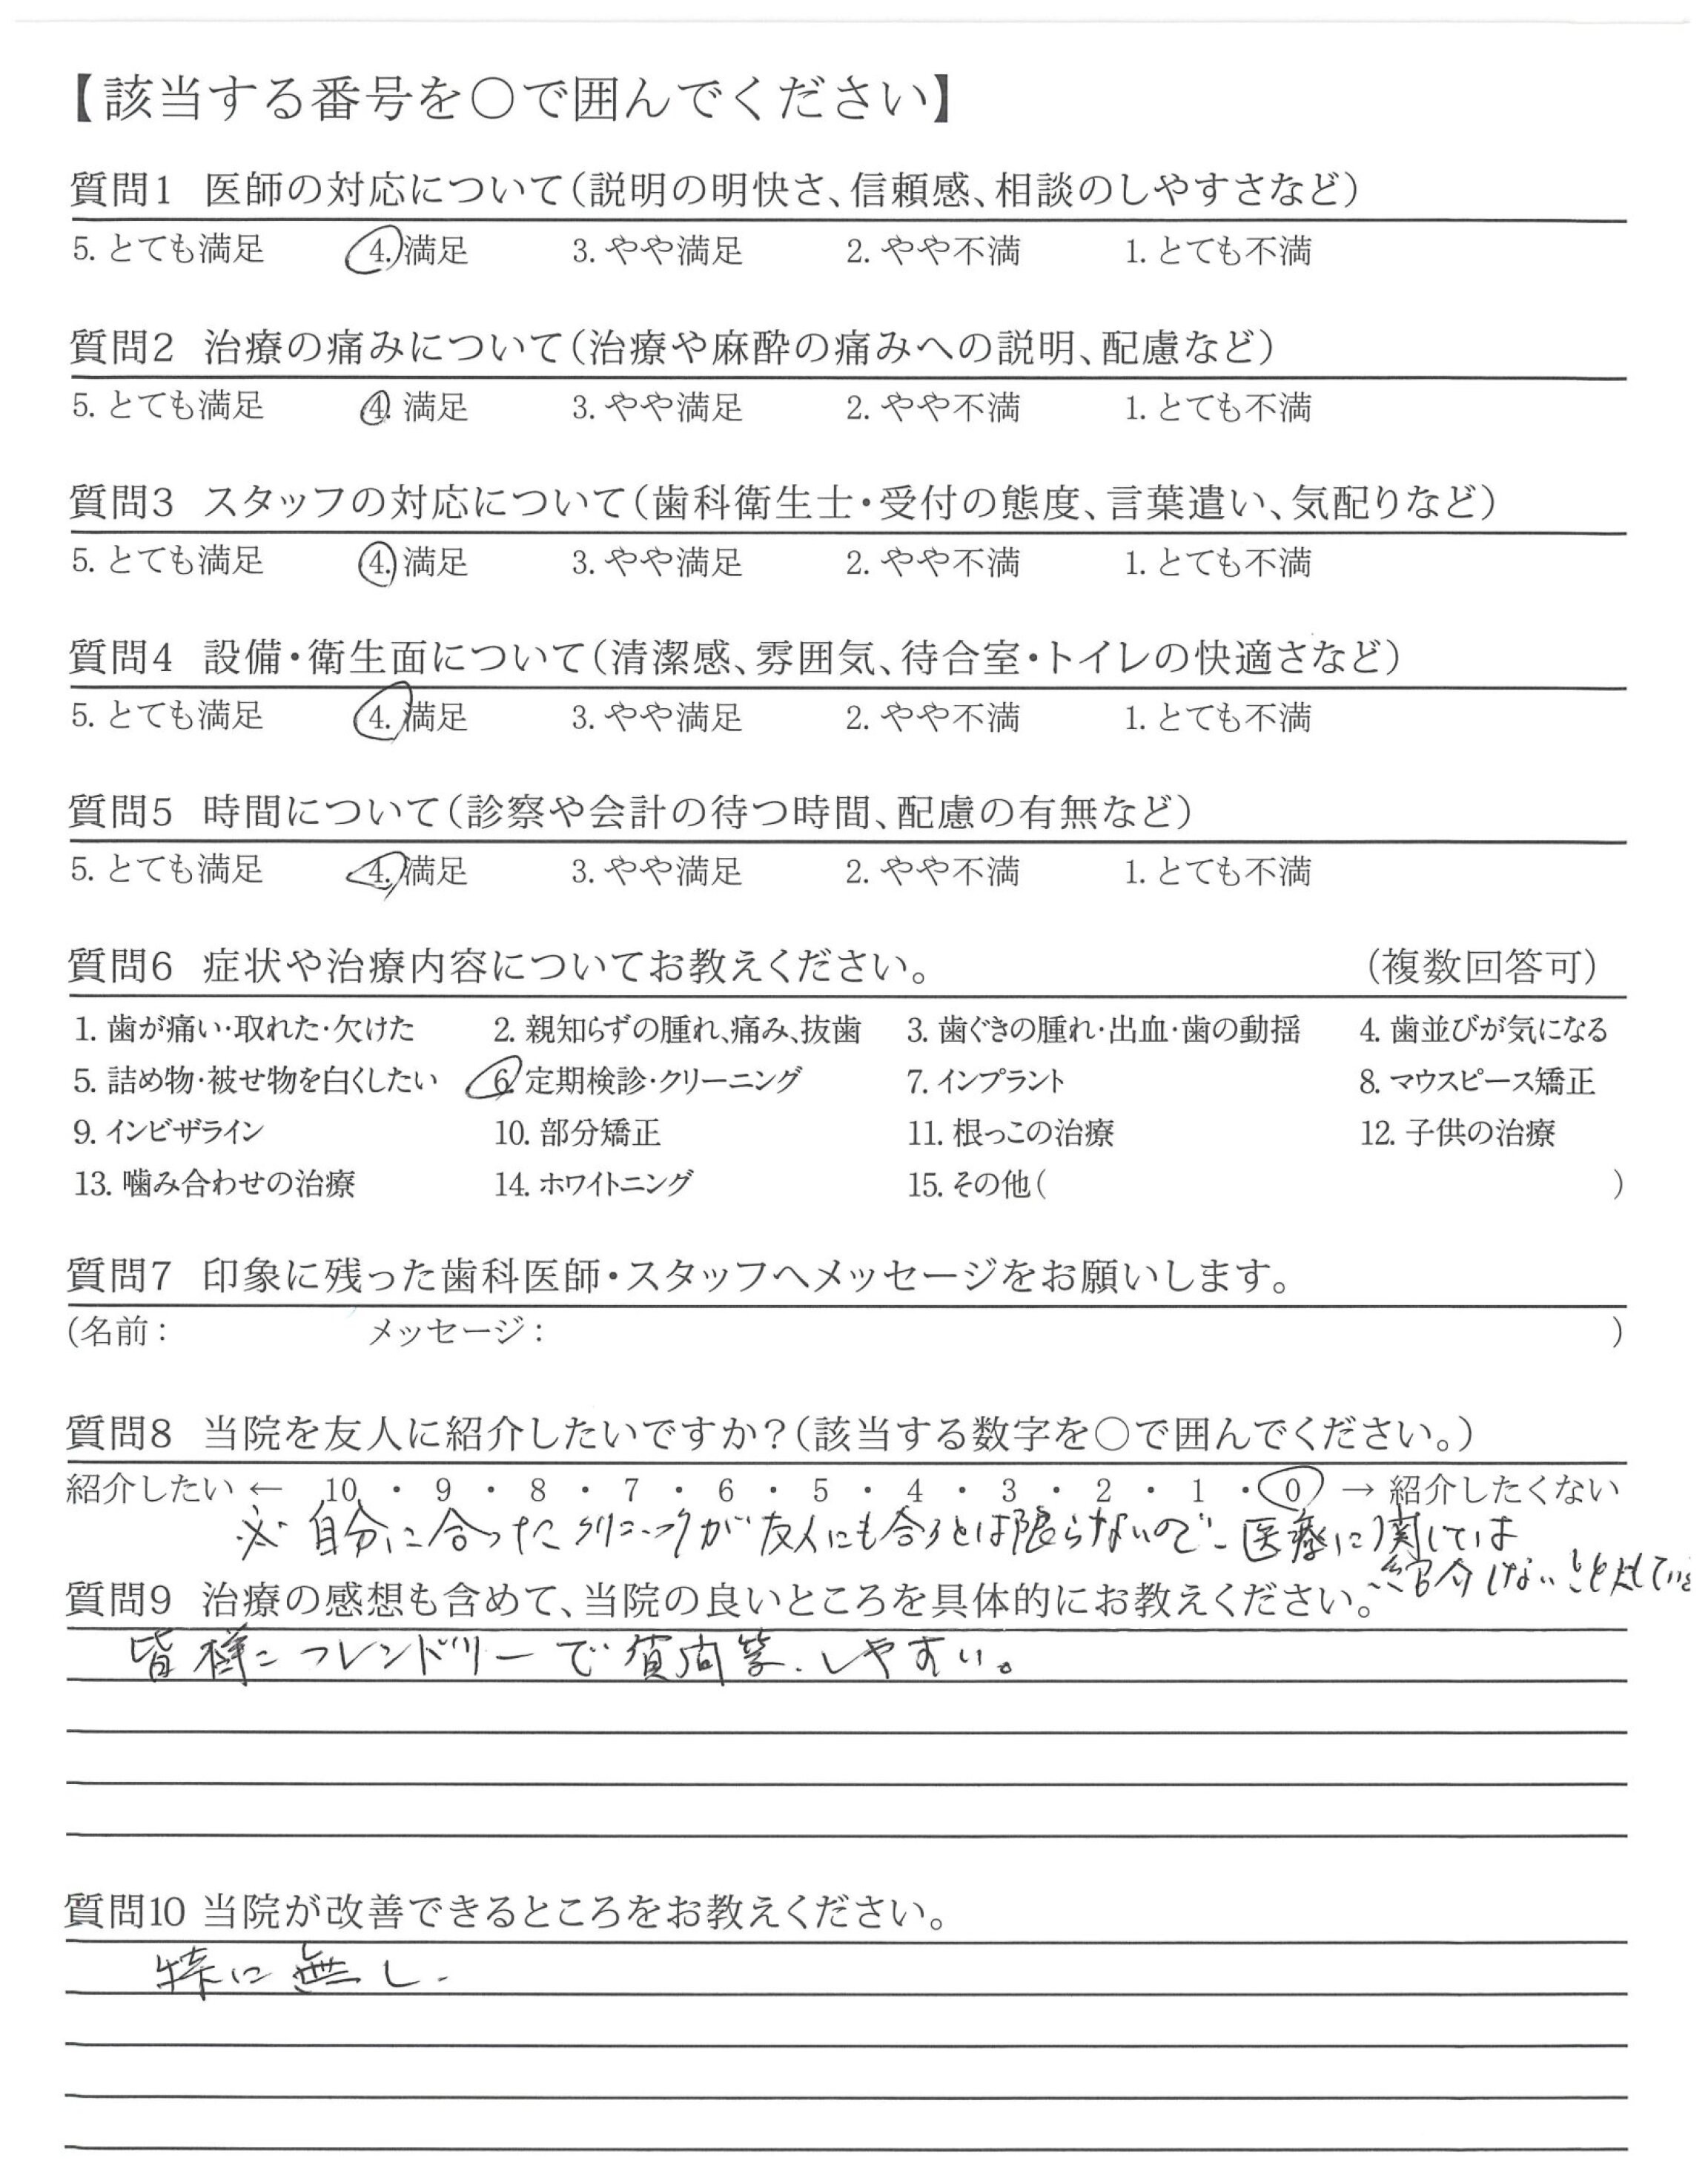 【該当する番号を〇で囲んでください】
質問1 医師の対応について(説明の明快さ、信頼感、相談のしやすさなど)
5. とても満足 4. 満足 3. やや満足 2. やや不満 1. とても不満
質問2 治療の痛みについて(治療や麻酔の痛みへの説明、配慮など)
5. とても満足 4. 満足 3. やや満足 2. やや不満 1. とても不満
質問3 スタッフの対応について(歯科衛生士・受付の態度、言葉遣い、気配りなど)
5. とても満足 4. 満足 3. やや満足 2. やや不満 1. とても不満
質問4 設備・衛生面について(清潔感、雰囲気、待合室・トイレの快適さなど)
5. とても満足 4. 満足 3. やや満足 2. やや不満 1. とても不満
質問5 時間について(診察や会計の待つ時間、配慮の有無など)
5. とても満足 4. 満足 3. やや満足 2. やや不満 1. とても不満
質問6 症状や治療内容についてお教えください。 (複数回答可)
1. 歯が痛い・取れた・欠けた 2. 親知らずの腫れ、痛み、抜歯 3. 歯ぐきの腫れ・出血・歯の動揺 4. 歯並びが気になる
5. 詰め物・被せ物を白くしたい 6. 定期検診・クリーニング 7. インプラント 8. マウスピース矯正
9. インビザライン 10. 部分矯正 11. 根っこの治療 12. 子供の治療
13. 噛み合わせの治療 14. ホワイトニング 15. その他( )
質問7 印象に残った歯科医師・スタッフへメッセージをお願いします。
(名前: メッセージ: )
質問8 当院を友人に紹介したいですか?(該当する数字を〇で囲んでください。)
紹介したい ← 10 ・ 9 ・ 8 ・ 7 ・ 6 ・ 5 ・ 4 ・ 3 ・ 2 ・ 1 ・ 0 → 紹介したくない
※ 自分に合ったクリニックが友人にも合うとは限らないので、医療に関しては
紹介しないことにしている
質問9 治療の感想も含めて、当院の良いところを具体的にお教えください。
皆様フレンドリーで質問等しやすい。
質問10 当院が改善できるところをお教えください。
特に無し.